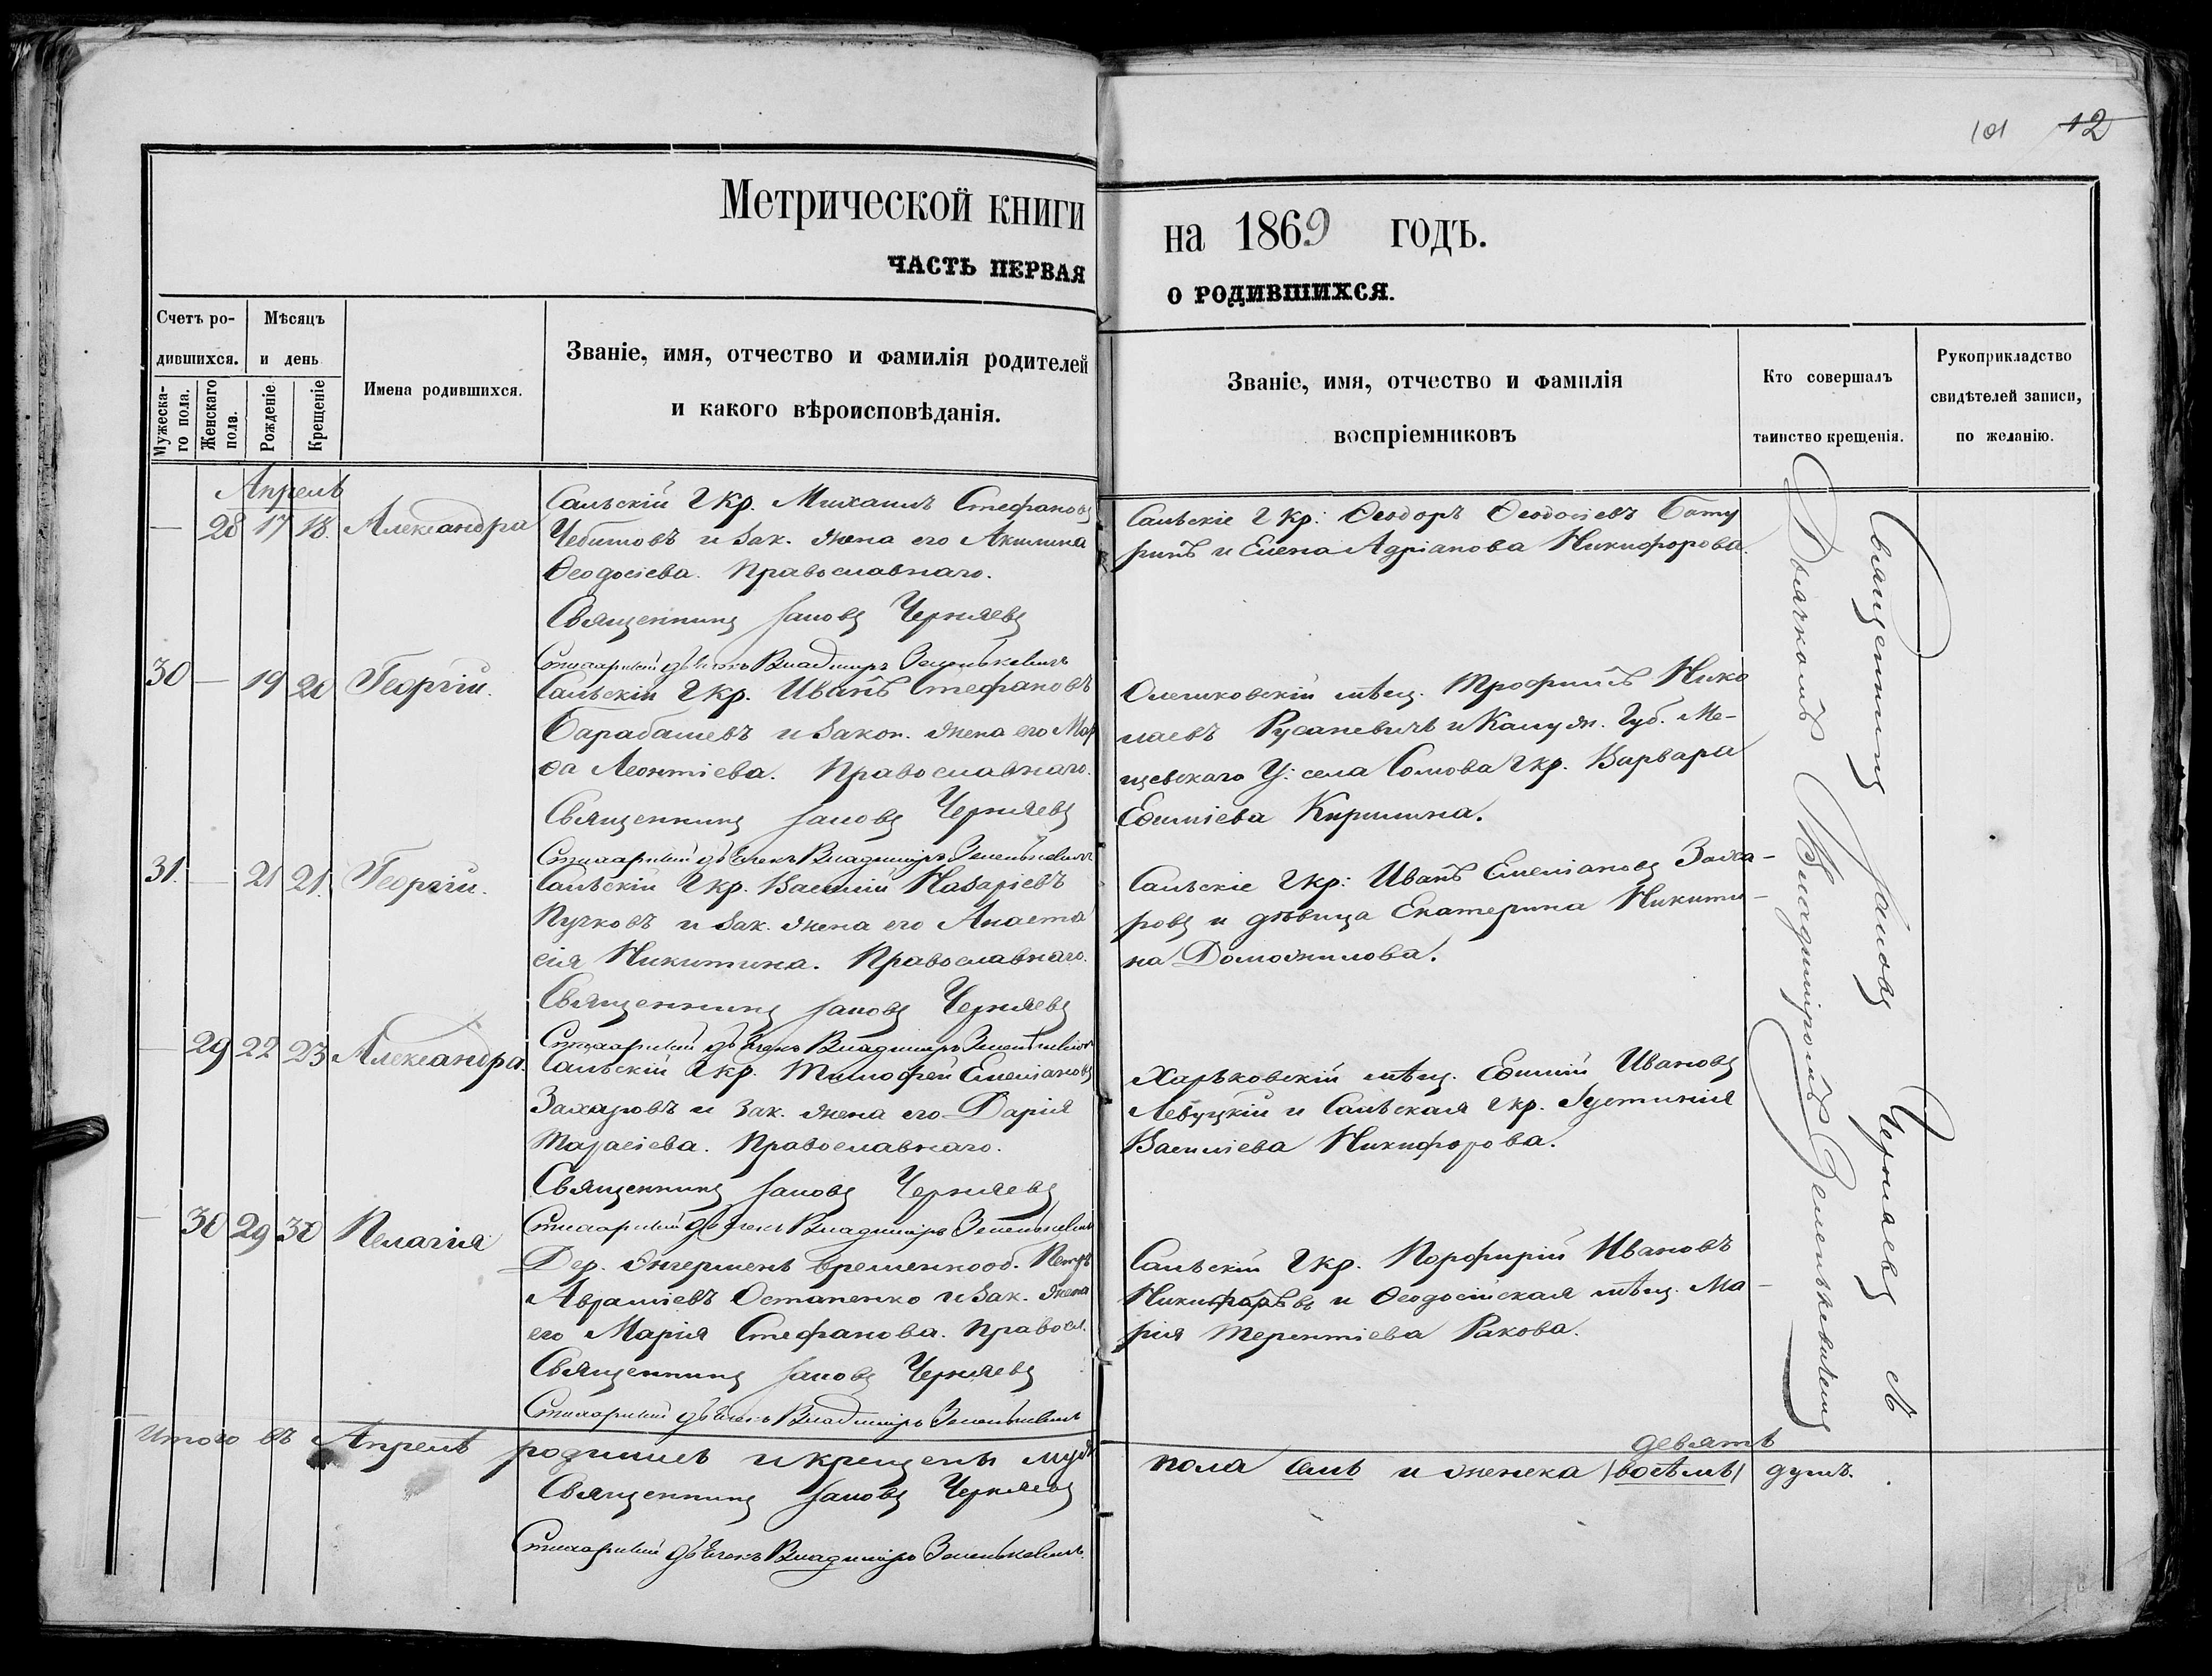 101 12
Метрической книги
на 1869 годъ.
ЧАСТЬ ПЕРВАЯ
О РОДИВШИХСЯ.
Счетъ ро-
дившихся.
Мѣсяцъ
и день
Мужеска-
го пола.
Женскаго
пола.
Рожденіе
Крещеніе
Имена родившихся.
Званіе, имя, отчество и фамилія родителей
и какого вѣроисповѣданія.
Званіе, имя, отчество и фамилія
воспріемниковъ
Кто совершалъ
таинство крещенія.
Рукоприкладство
свидѣтелей записи,
по желанію.
Апрель
— 28 17 18. Александра
Сальскій Г кр. Михаилъ Стефановъ
Чебитовъ и Зак. жена его Акилина
Ѳеодосіева. Православнаго.
Священникъ Іаковъ Черняевъ
Стихарный дьячекъ Владимиръ Зеленькевичъ
Сальскіе Г кр: Ѳеодоръ Ѳеодосіевъ Бату
ринъ и Елена Адріанова Никифорова.
30 — 19 20 Георгій.
Сальскій Г кр. Иванъ Стефановъ
Барабашевъ и Закон. жена его Мар
ѳа Леонтіева. Православнаго.
Священникъ Іаковъ Черняевъ
Стихарный дьячекъ Владимиръ Зеленькевичъ
Олешковскій мѣщ. Трофимъ Нико
лаевъ Русаневичъ и Калуж. Губ. Ме-
щевскаго У: села Сомова Г кр. Варвара
Еѳиміева Киршина.
31. — 21 21. Георгій.
Сальскій Г кр. Василій Назаріевъ
Пучковъ и Зак. жена его Анаста
сія Никитина. Православнаго.
Священникъ Іаковъ Черняевъ
Стихарный дьячекъ Владимиръ Зеленькевичъ
Сальскіе Г кр: Иванъ Емеліановъ Заха-
ровъ и дѣвица Екатерина Никити-
на Доможилова.
— 29 22 23 Александра.
Сальскій Г кр. Тимофей Емеліановъ
Захаровъ и Зак. жена его Дарія
Тарасіева. Православнаго.
Священникъ Іаковъ Черняевъ
Стихарный дьячекъ Владимиръ Зеленькевичъ
Харьковскій мѣщ. Еѳимій Ивановъ
Лебуцкій и Сальская Г кр. Іустинія
Василіева Никифорова.
— 30 29 30 Пелагія
Дер. временнооб. Петръ
Авраміевъ Остапенко и Зак. жена
его Марія Стефанова. Правосл.
Священникъ Іаковъ Черняевъ
Стихарный дьячекъ Владимиръ Зеленькевичъ
Сальскій Г кр. Порфирій Ивановъ
Никифоровъ и Ѳеодосійская мѣщ. Ма-
рія Терентіева Ракова.
Священникъ Іаковъ Черняевъ съ
Дьячкомъ Владиміромъ Зеленькевичемъ
Итого въ Апрелѣ родились и крещены муж.
пола семь и женска (восемь) девять душъ.
Священникъ Іаковъ Черняевъ
Стихарный дьячекъ Владимиръ Зеленькевичъ.